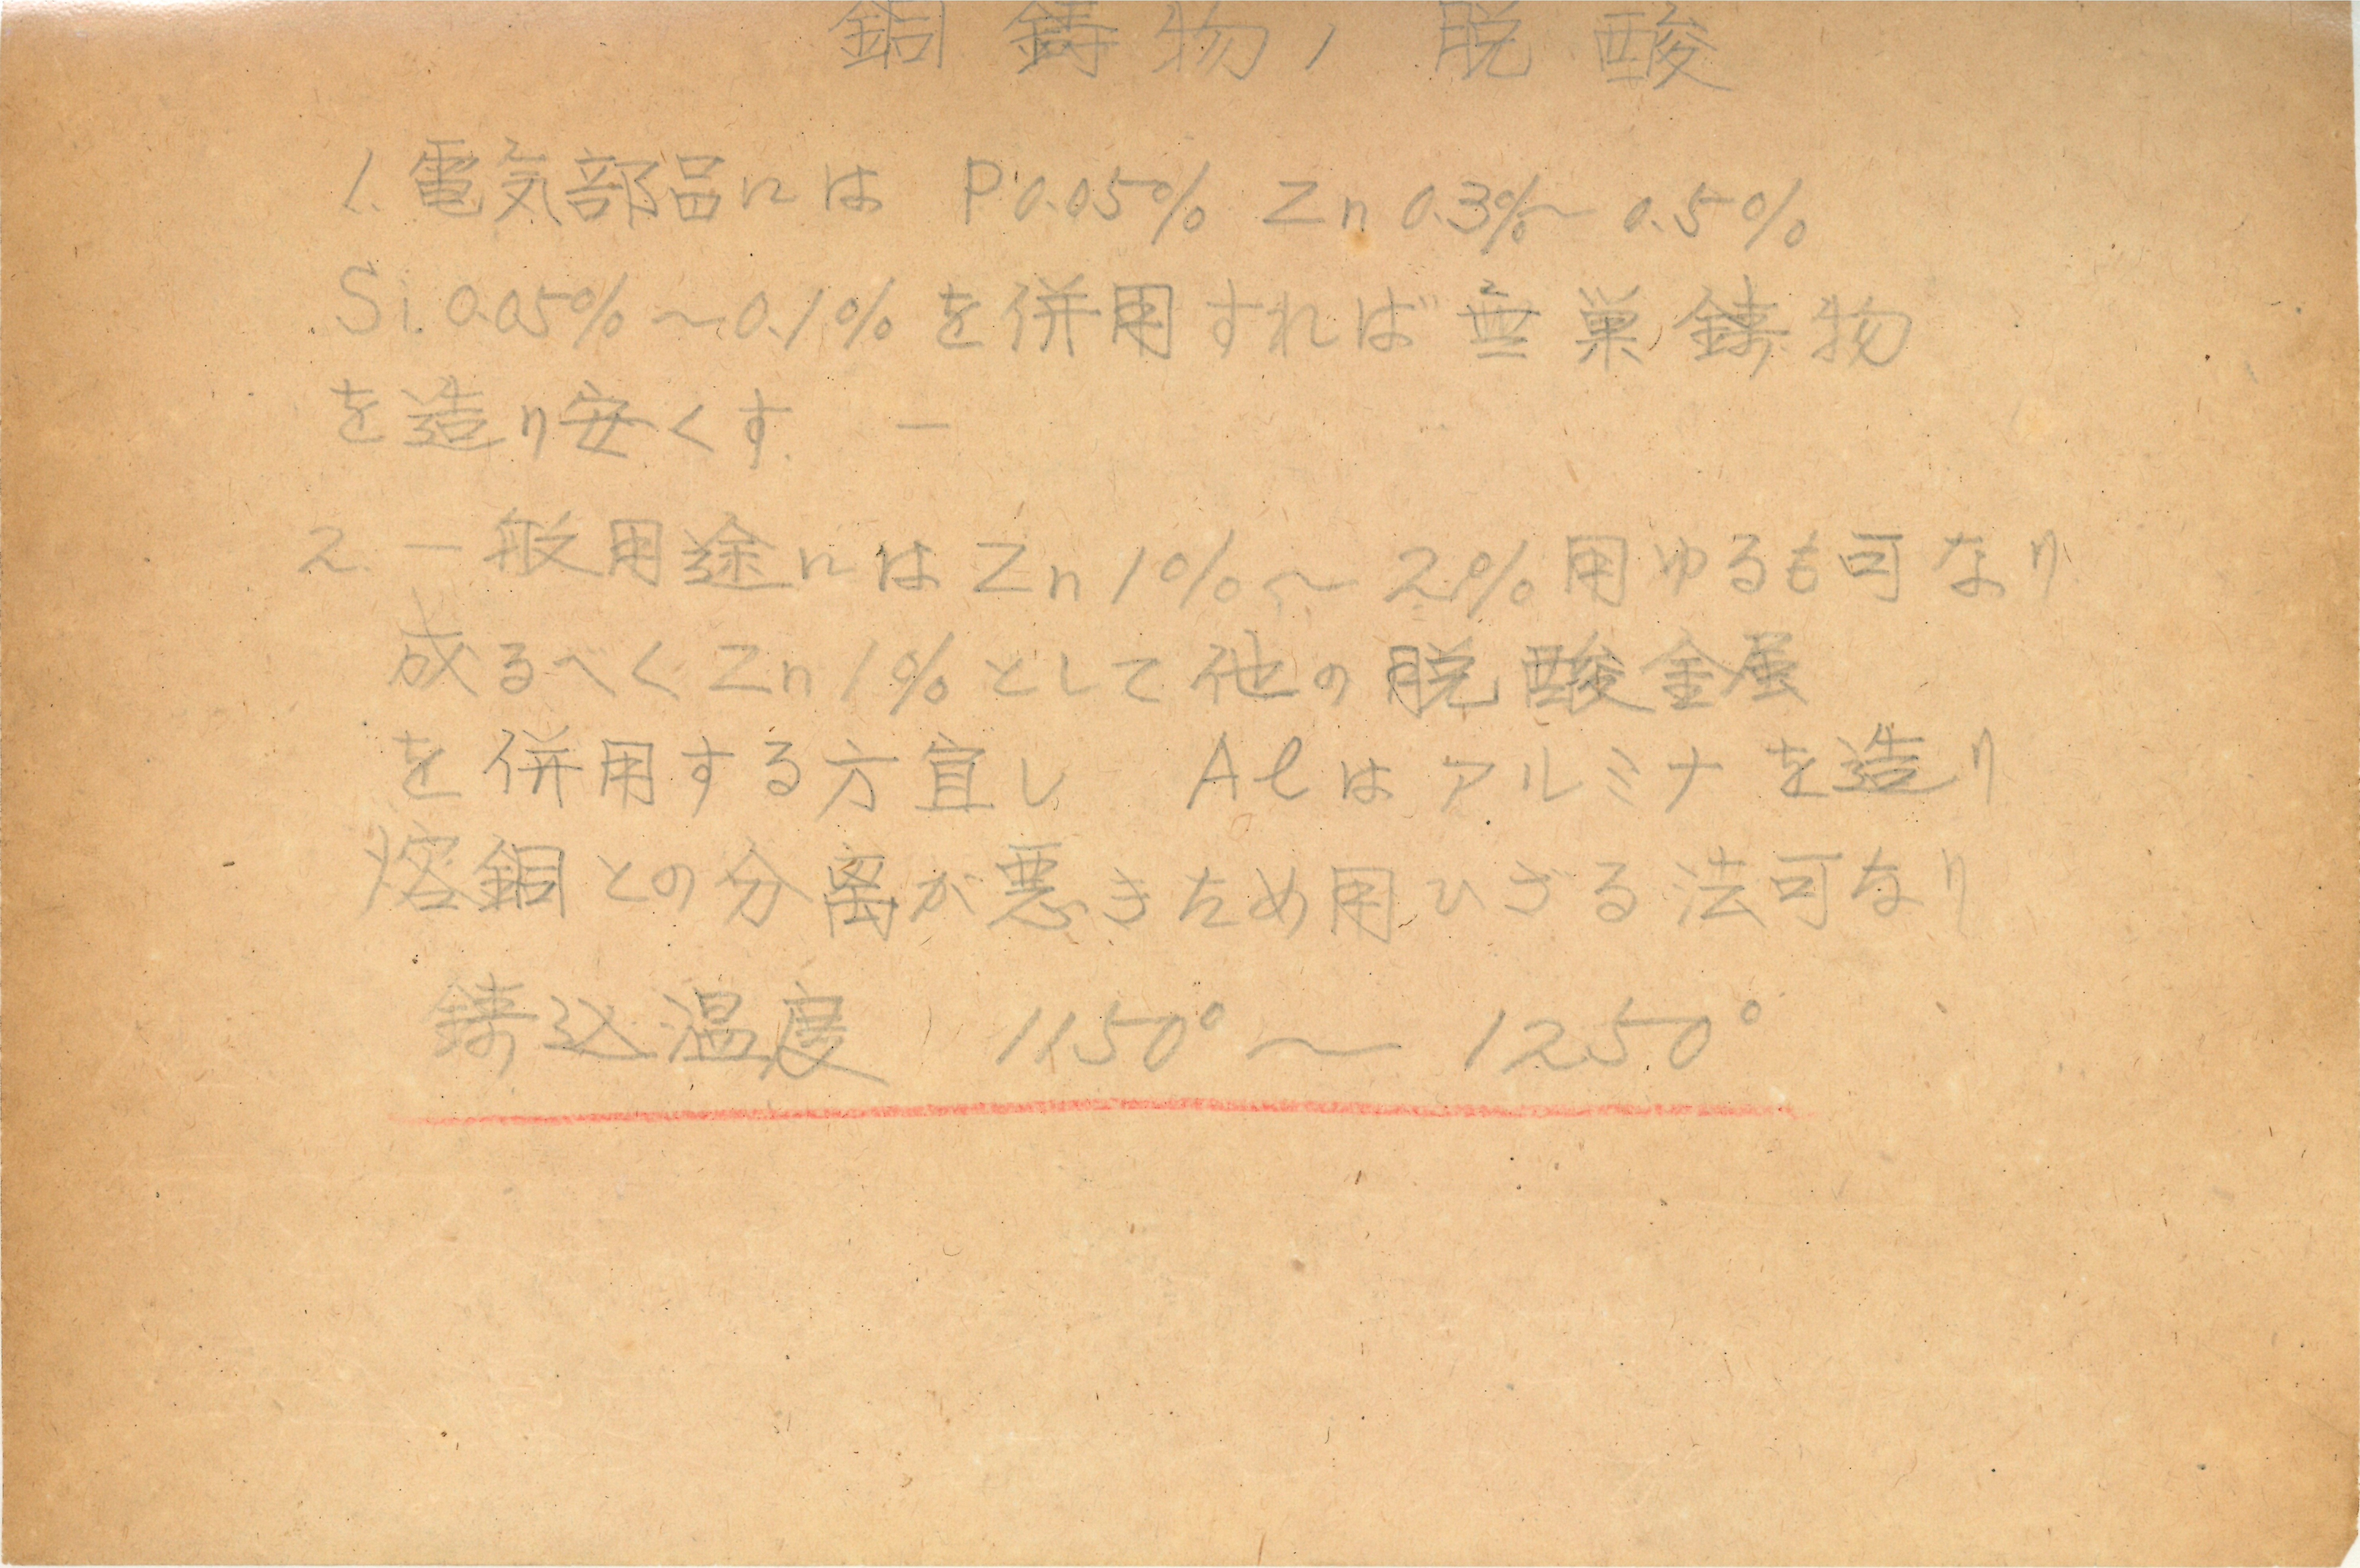 銅鋳物ノ脱酸
1. 電気部品には P 0.05% Zn 0.3%~0.5%
Si. 0.05%~0.1%を併用すれば無巣鋳物
を造り安くす. ー
2. 一般用途には Zn 1%~2%用ゆるも可なり
成るべく Zn 1%として他の脱酸金属
を併用する方宜し Alはアルミナを造り
熔銅との分離が悪きため用ひざる法可なり
鋳込温度 1150°~1250°